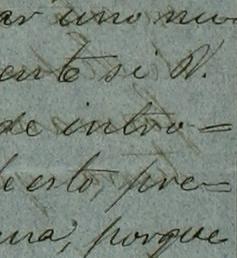 ar uno nu
ente si V.
de intro=
esto, pre=
ra, porque